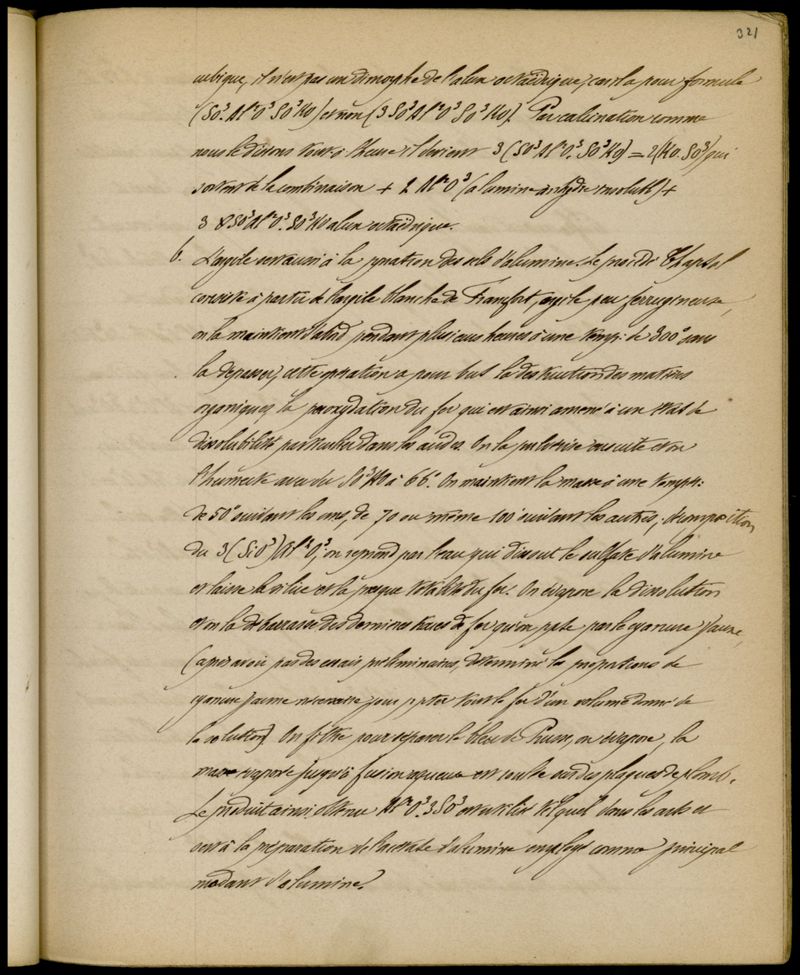 321
cubique, il n'est pas un dimorphe de l'alun octaédrique, car il a pour formule
(So³. Al²O³ So³Ko) et non (3 So³Al²O³ So³Ko). Par calcination comme
nous le disons tout à l'heure il devient 3(So³Al²O³. So³Ko) = 2(Ko. So³) qui
sortent de la combinaison + 2 Al²O³ (alumine anhydre insoluble) +
3 So³Al²O³. So³Ko alun octaédrique.
6. L'argile sert aussi à la préparation des sels d'alumine. Le procédé Chaptal
consiste à partir de l'argile blanche de Francfort, argile peu ferrugineuse,
on la maintient d'abord pendant plusieurs heures à une temp: de 300° sans
la dépasser, cette opération a pour but la destruction des matières
organiques, la peroxydation du fer qui est ainsi amené à un état de
dissolubilité particulier dans les acides. On la pulvérise ensuite et on
l'humecte avec du So³Ho à 66°. On maintient la masse à une tempre:
de 50° suivant les uns, de 70 ou même 100° suivant les autres; décomposition
du 3(SiO³)Al²O³; on reprend par l'eau qui dissout le sulfate d'alumine
et laisse la silice et la presque totalité du fer. On évapore la dissolution
et on la débarrasse des dernières traces de fer qu'on pte par le cyanure jaune,
(après avoir par des essais préliminaires, déterminé les proportions de
cyanure jaune nécessaire pour pter tout le fer d'un volume donné de
la solution). On filtre pour séparer le bleu de Prusse, on évapore, la
masse évaporée jusqu'à fusion aqueuse est coulée sur des plaques de plomb.
Le produit ainsi obtenu Al²O³. 3So³ est utilisé tel quel dans les arts et
sert à la préparation de l'acétate d'alumine employé comme principal
mordant d'alumine.